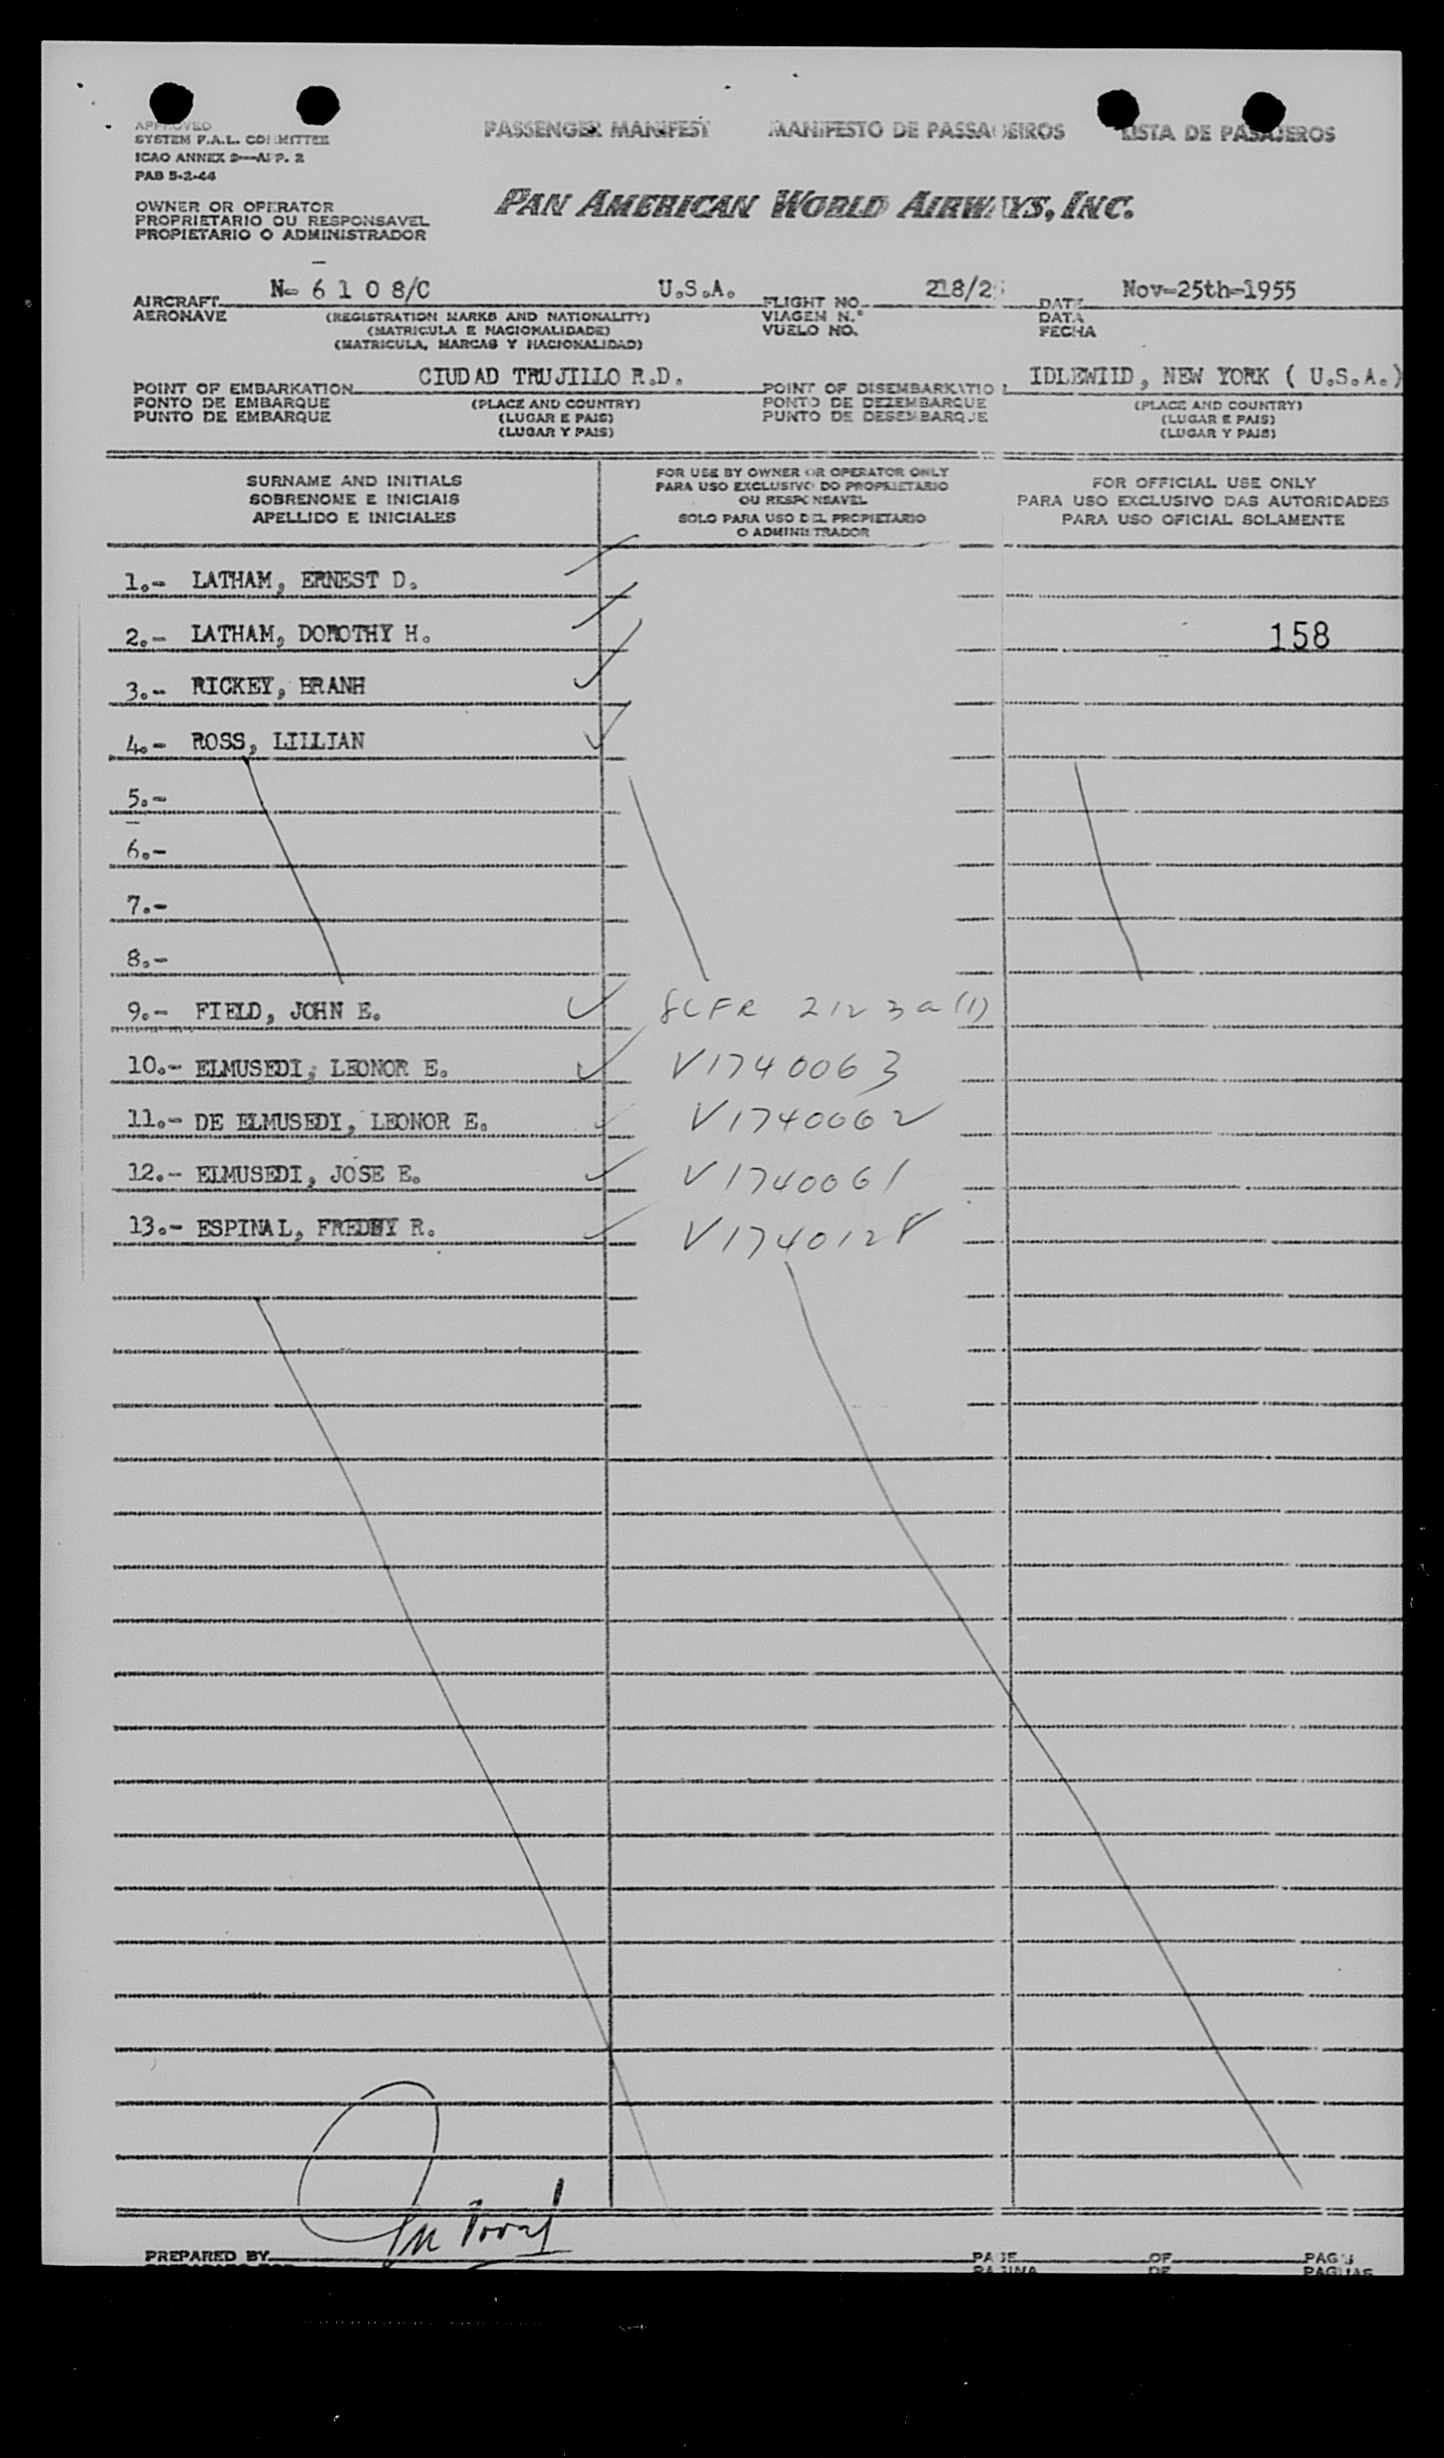 APPROVED
SYSTEM F.A.L. COMMITTEE
ICAO ANNEX 9—APP. 2
PAB 5-2-44
PASSENGER MANIFEST MANIFESTO DE PASSAGEIROS LISTA DE PASAJEROS
OWNER OR OPERATOR
PROPRIETARIO OU RESPONSAVEL
PROPIETARIO O ADMINISTRADOR
PAN AMERICAN WORLD AIRWAYS, INC.
AIRCRAFT N- 6 1 0 8/C U.S.A. FLIGHT NO. 218/2 DATE Nov-25th-1955
AERONAVE (REGISTRATION MARKS AND NATIONALITY) VIAGEM N.º DATA
(MATRICULA E NACIONALIDADE) VUELO NO. FECHA
(MATRICULA, MARCAS Y NACIONALIDAD)
POINT OF EMBARKATION CIUDAD TRUJILLO R.D. POINT OF DISEMBARKATION IDLEWILD, NEW YORK ( U.S.A.)
PONTO DE EMBARQUE (PLACE AND COUNTRY) PONTO DE DEZEMBARQUE (PLACE AND COUNTRY)
PUNTO DE EMBARQUE (LUGAR E PAIS) PUNTO DE DESEMBARQUE (LUGAR E PAIS)
(LUGAR Y PAIS) (LUGAR Y PAIS)
SURNAME AND INITIALS
SOBRENOME E INICIAIS
APELLIDO E INICIALES
FOR USE BY OWNER OR OPERATOR ONLY
PARA USO EXCLUSIVO DO PROPRIETARIO
OU RESPONSAVEL
SOLO PARA USO DEL PROPIETARIO
O ADMINISTRADOR
FOR OFFICIAL USE ONLY
PARA USO EXCLUSIVO DAS AUTORIDADES
PARA USO OFICIAL SOLAMENTE
1.- LATHAM, ERNEST D.
2.- LATHAM, DOROTHY H. 158
3.- RICKEY, BRANH
4.- ROSS, LILLIAN
5.-
6.-
7.-
8.-
9.- FIELD, JOHN E. 8CFR 212 3a(1)
10.- ELMUSEDI, LEONOR E. V1740063
11.- DE ELMUSEDI, LEONOR E. V1740062
12.- ELMUSEDI, JOSE E. V1740061
13.- ESPINAL, FREDDY R. V1740128
PREPARED BY PAGE OF PAGS